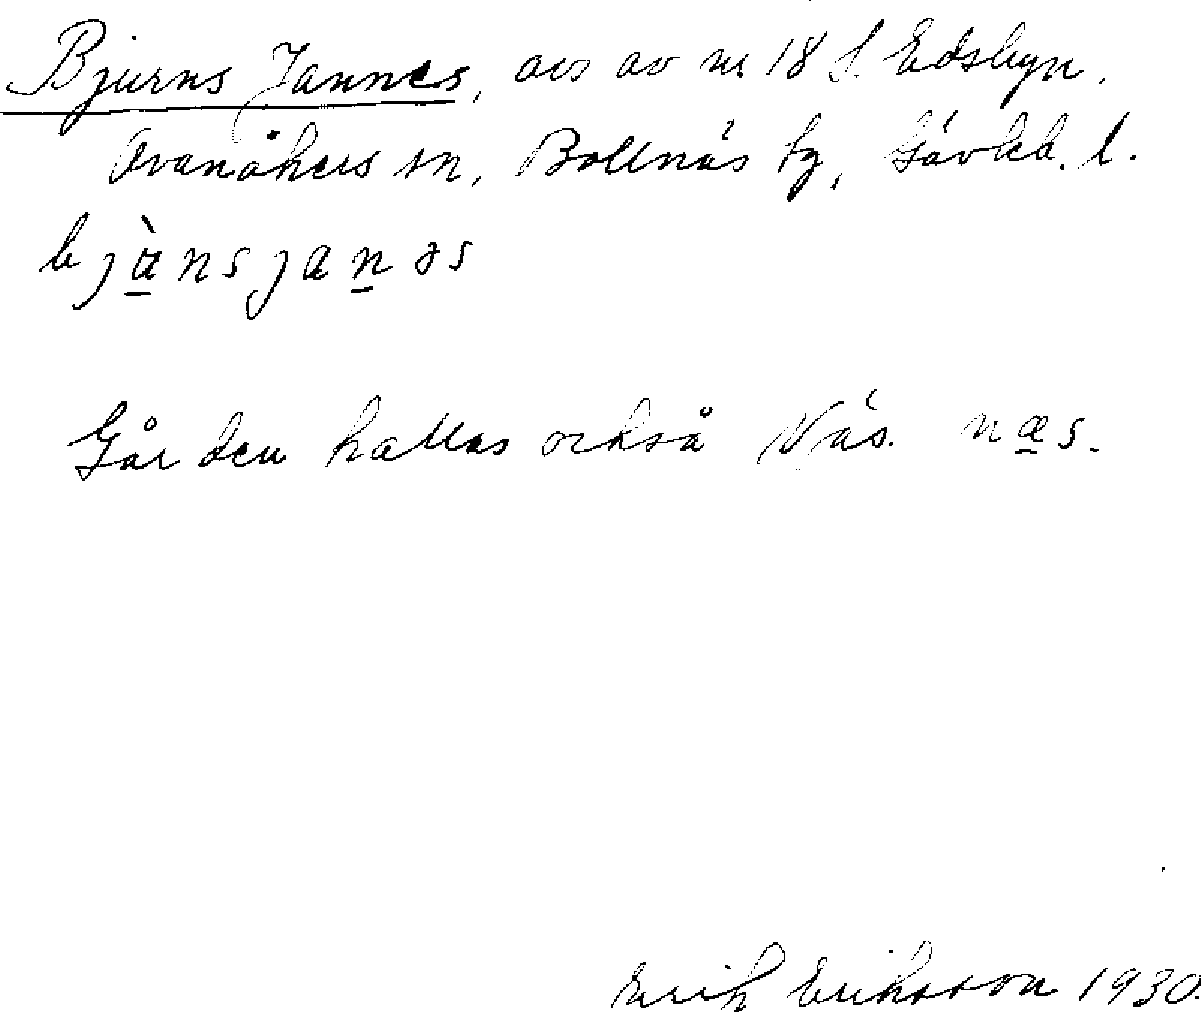 Bjurns Jannes, avs av nr 18 i Edsbyn,
Ovanåkers sn, Bollnäs tg, Gävleb. l.
bjànsjanəs
Gården kallas också Näs. næs.
Erik Eriksson 1930.